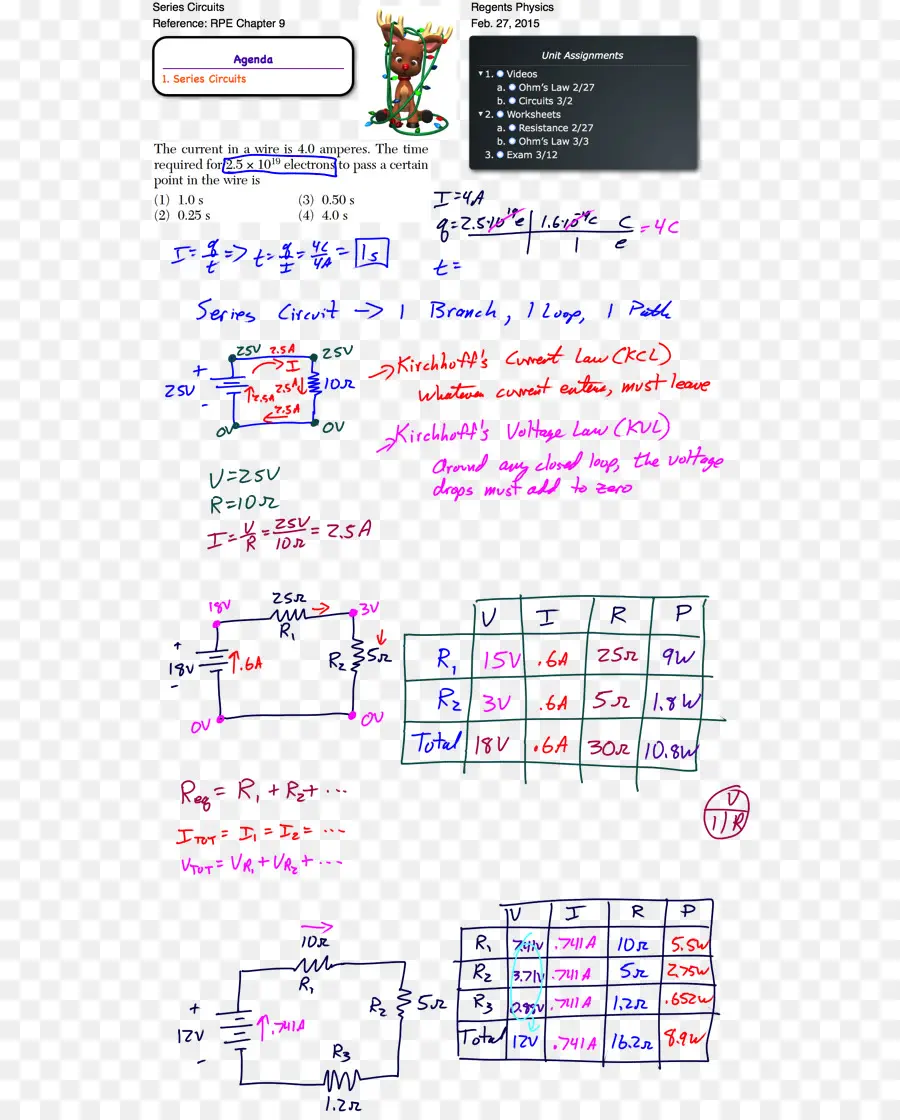 Series Circuits
Reference: RPE Chapter 9
Regents Physics
Feb. 27, 2015
Agenda
1. Series Circuits
Unit Assignments
1. Videos
a. Ohm's Law 2/27
b. Circuits 3/2
2. Worksheets
a. Resistance 2/27
b. Ohm's Law 3/3
3. Exam 3/12
The current in a wire is 4.0 amperes. The time
required for 2.5 × 10¹⁹ electrons to pass a certain
point in the wire is
(1) 1.0 s
(2) 0.25 s
(3) 0.50 s
(4) 4.0 s
I=4A
q=2.5·10¹⁹e | 1.6·10⁻¹⁹C C = 4C
1 e
t=
I=q/t => t=q/I=4C/4A=1s
Series Circuit -> 1 Branch, 1 Loop, 1 Path
25V 2.5A 25V
+ I
25V 2.5A 2.5A 10Ω
- 2.5A
0V 0V
-> Kirchhoff's Current Law (KCL)
Whatever current enters, must leave
-> Kirchhoff's Voltage Law (KVL)
Around any closed loop, the voltage
drops must add to zero
V=25V
R=10Ω
I=V/R=25V/10Ω=2.5A
25Ω
18V 3V
R₁
+
18V .6A R₂ 5Ω
-
0V 0V
V I R P
R₁ 15V .6A 25Ω 9W
R₂ 3V .6A 5Ω 1.8W
Total 18V .6A 30Ω 10.8W
Req = R₁ + R₂ + ...
ITOT = I₁ = I₂ = ...
VTOT = VR₁ + VR₂ + ...
V
I R
10Ω
R₁
R₂ 5Ω
+
12V .741A
-
R₃
1.2Ω
V I R P
R₁ 7.41V .741A 10Ω 5.5W
R₂ 3.71V .741A 5Ω 2.75W
R₃ 0.89V .741A 1.2Ω .652W
Total 12V .741A 16.2Ω 8.9W